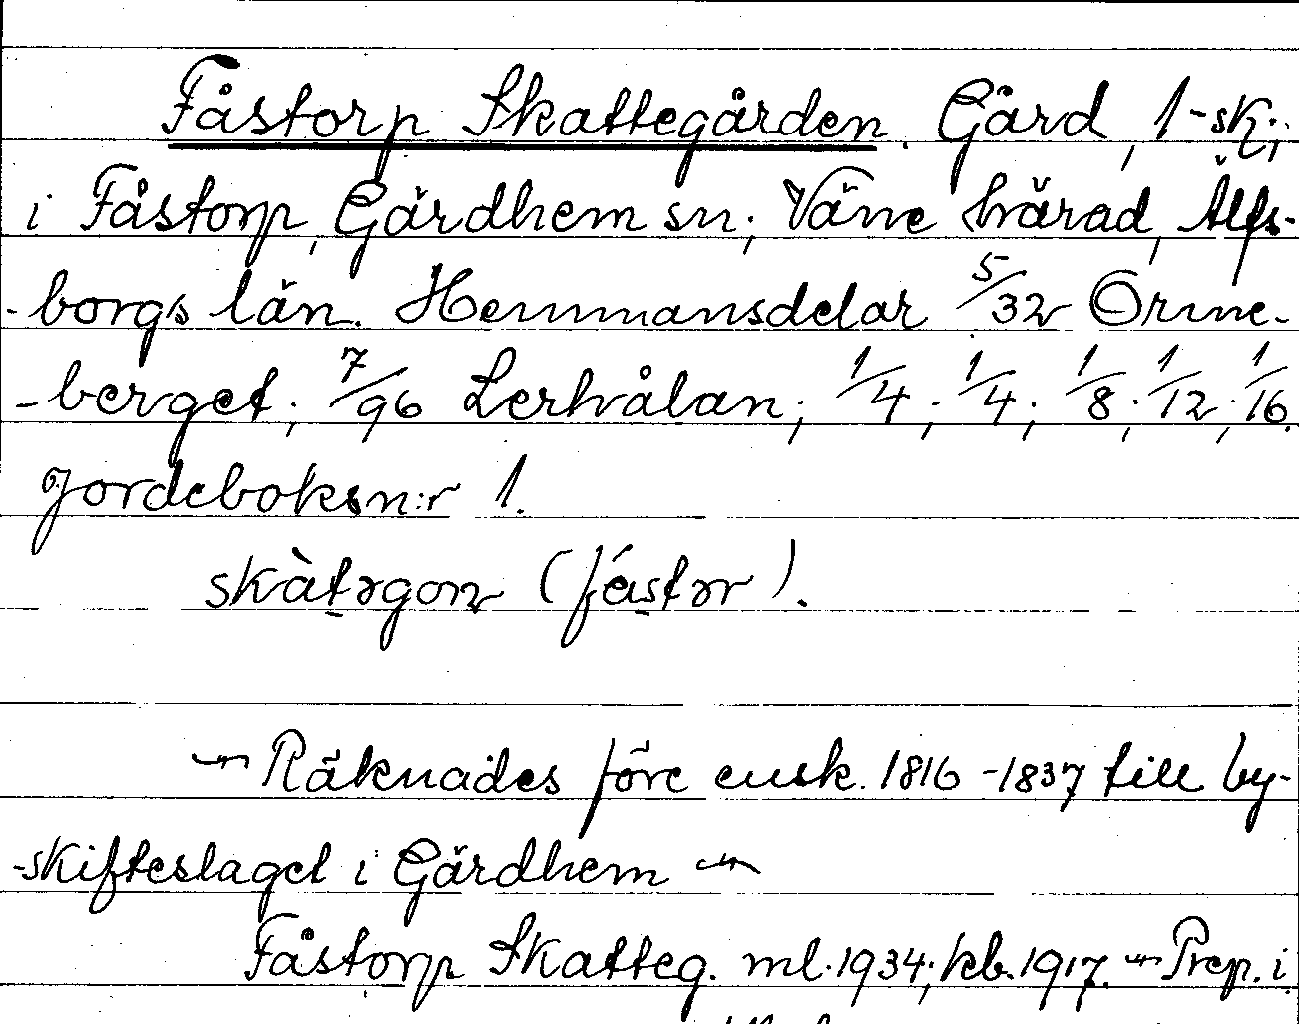 Fåstorp Skattegården. Gård, 1 sk;
i Fåstorp, Gärdhem sn; Väne härad, Älfs-
-borgs län. Hemmansdelar 5/32 Orme-
-berget; 7/96 Lerhålan; 1/4; 1/4; 1/8; 1/12; 1/16.
Jordeboksn:r 1.
skàtəgoɳ (fástər).
Räknades före ensk. 1816-1837 till by-
-skifteslaget i Gärdhem
Fåstorp Skatteg. ml. 1934; kb. 1917. Prep. i